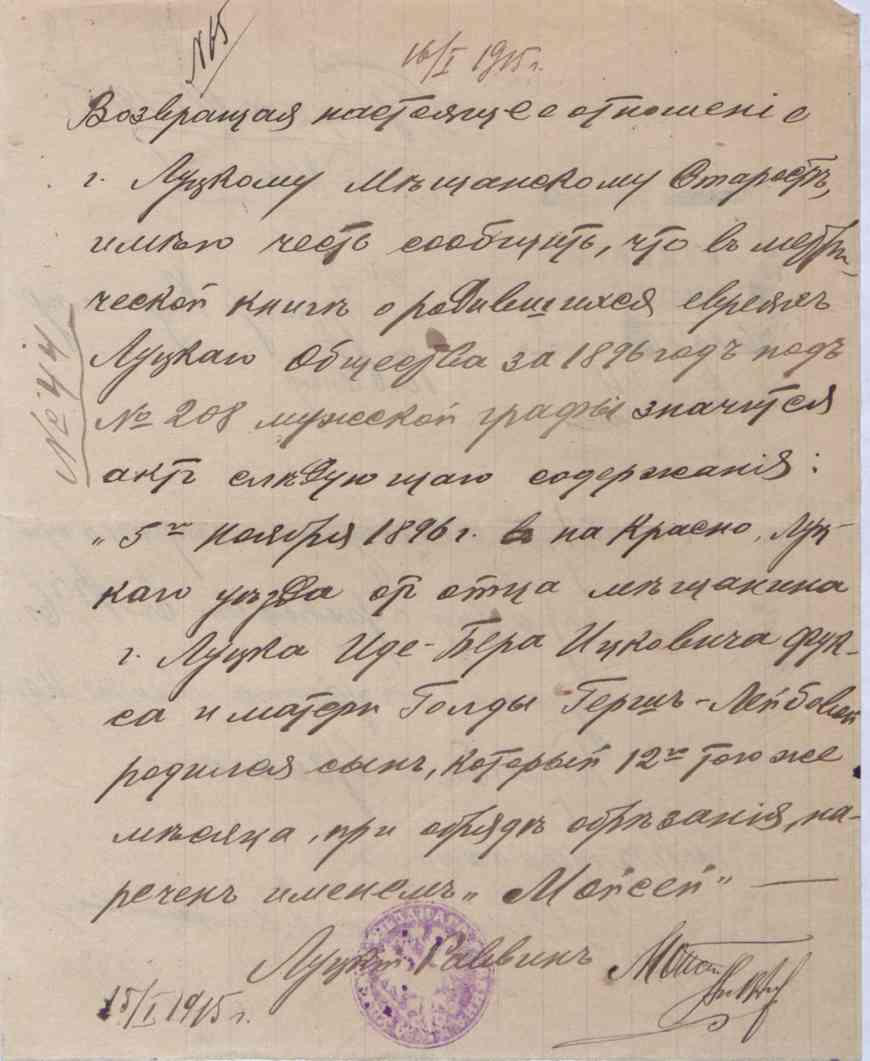 №5
16/I 1915 г.
Возвращая настоящее отношеніе
г. Луцкому Мѣщанскому Старостѣ,
имѣю честь сообщить, что въ метри-
ческой книгѣ о родившихся евреяхъ
Луцкаго Общества за 1896 годъ подъ
№ 208 мужской графы значится
актъ слѣдующаго содержанія:
№ 44
"5го Ноября 1896 г. на Красно, Луц-
каго уѣзда от отца мѣщанина
г. Луцка Иде-Бера Ицковича Фук-
са и матери Голды Гершъ-Лейбовой
родился сынъ, который 12го того же
мѣсяца, при обрядѣ обрѣзанія, на-
реченъ именемъ "Мойсей" —
Луцкій Раввинъ
15/I 1915 г.